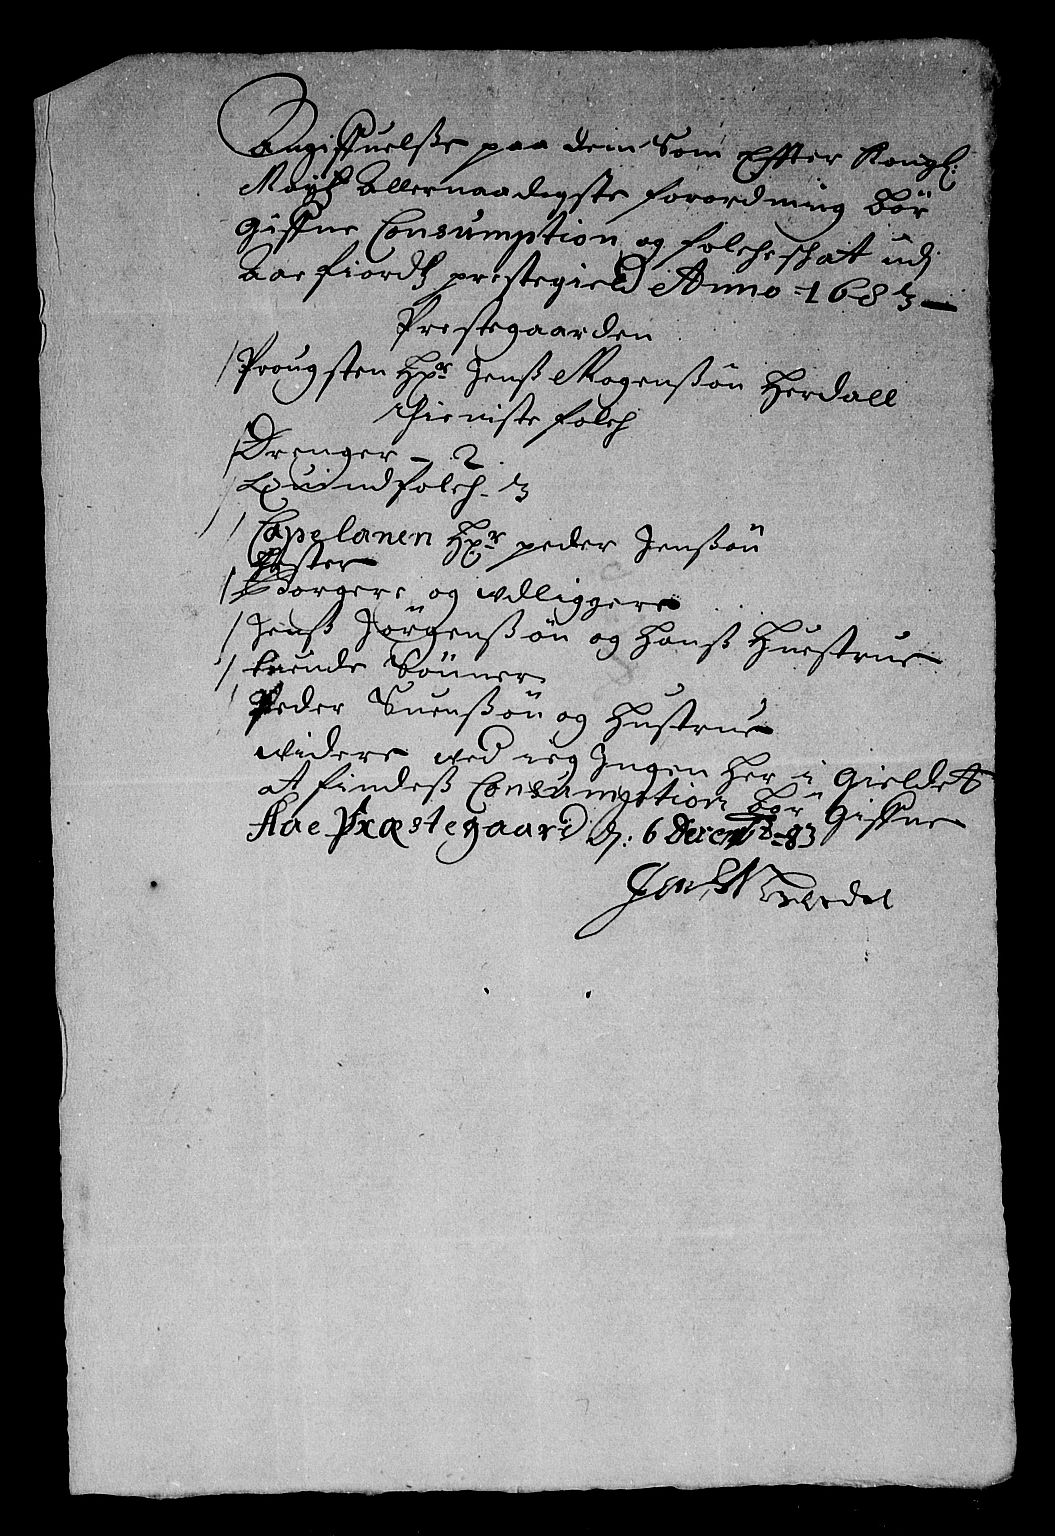 Angiffuelsße paa dem Som Effter Kongl:
Mayts Allernaadigste forordning bör
giffue Consumption og folcheskat udj
Aaefiordß prestegield Anno 1683
Prestegaarden
/ Prougsten Hr Jenß Mogenßön Herdall
Thieniste folch
/ Drenger - 2
/ Quindfolch - 3
/ Capelanen Hr peder Jenßön
/ Borgere og udliggere
/ Jenß Jörgenßön og Hanß Huestrue
/ tuende Sönner
/ Peder Suenßön og Hustrue
widere ved ieg Ingen her i gieldet
at findeß Consumption bör giffue
Aae Præstegaard dj: 6 Decemb: 83
Jenß M Herdal